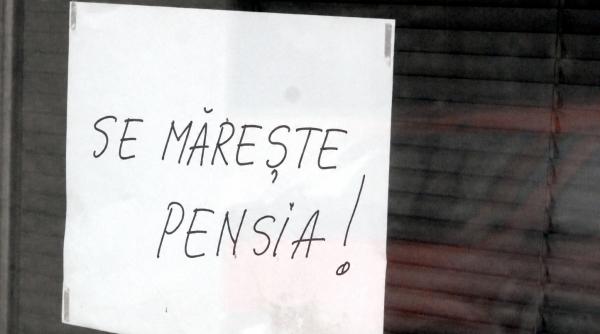 SE MĂREȘTE
PENSiA!